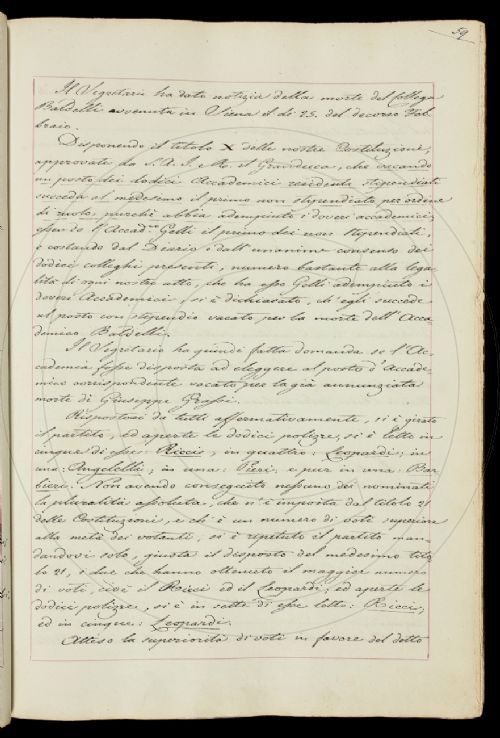 59
Il Segretario ha dato notizia della morte del collega
Baldelli avvenuta in Siena il dì 25. del decorso Feb-
braio.
Disponendo il titolo X delle nostre Costituzione,
approvate da S. A. I. e R. il Granduca, che vacando
un posto dei dodici Accademici residenti stipendiati
succeda al medesimo il primo non stipendiato per ordine
di ruolo, purchè abbia adempiuto i doveri accademici;
essendo l'Accad.co Gelli il primo dei non stipendiati,
e costando dal Diario e dall'unanime consenso dei
dodici colleghi presenti, numero bastante alla lega-
lità di ogni nostro atto, che ha esso Gelli adempiuto i
doveri Accademici, si è dichiarato, ch'egli succede
al posto con stipendio vacato per la morte dell'Acca-
demico Baldelli.
Il Segretario ha quindi fatta domanda se l'Ac-
cademia fosse disposta ad eleggere al posto d'Accade-
mico corrispondente vacato per la già annunziata
morte di Giuseppe Grassi.
Rispostosi da tutti affermativamente, si è girato
il partito, ed aperte le dodici polizze, si è letto in
cinque di esse: Ricci; in quattro: Leopardi; in
una: Angelelli; in una: Peri: e pur in una: Bar-
bieri. Non avendo conseguito nessuno dei nominati
la pluralità assoluta, che n'è imposta dal titolo 21
delle Costituzioni, e ch'è un numero di voti superiore
alla metà dei votanti, si è ripetuto il partito man-
dandovi solo, giusta il disposto del medesimo tito-
lo 21, i due che hanno ottenuto il maggior numero
di voti, cioè il Ricci ed il Leopardi; ed aperte le
dodici polizze, si è in sette di esse letto: Ricci;
ed in cinque: Leopardi.
Attesa la superiorità di voti in favore del detto